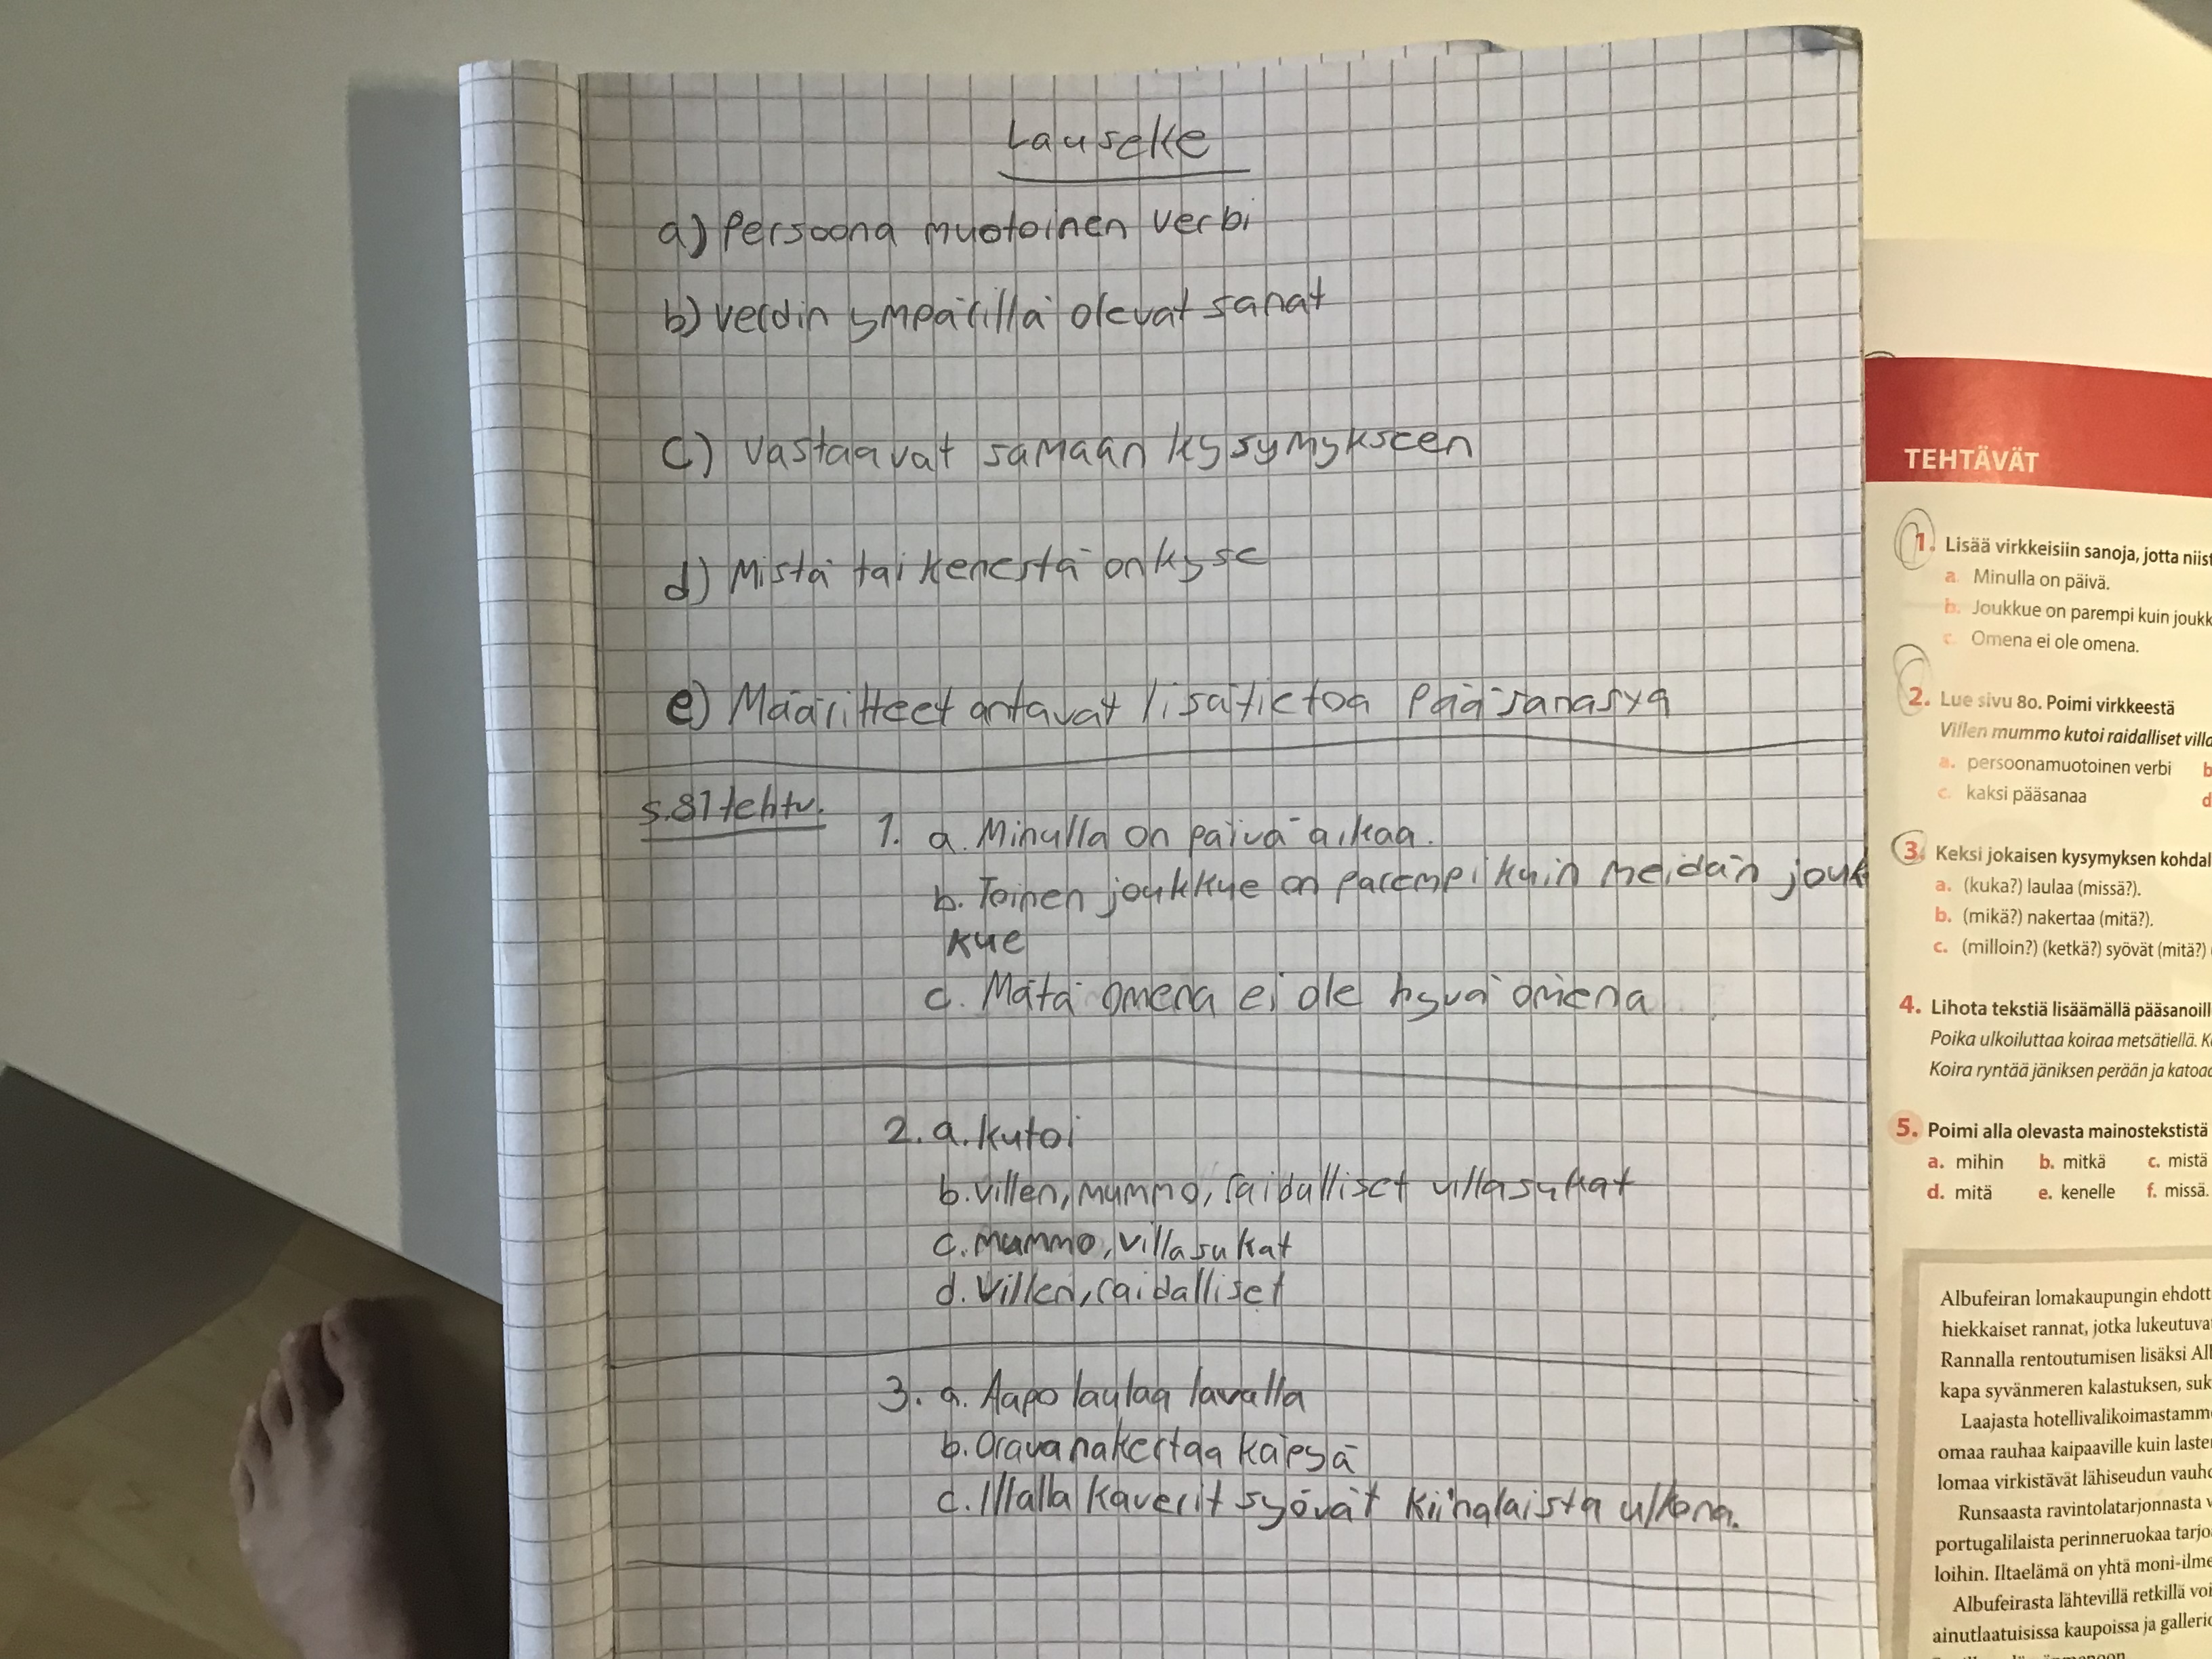 Lauseke
a) Persoona muotoinen verbi
b) verdin ympärillä olevat sanat
c) vastaavat samaan kysymykseen
d) Mistä tai kenestä on kyse
e) Määritteet antavat lisätietoa Pääsanasya
s.81 tehtv.
1. a. Minulla on päivä aikaa.
b. Toinen joukkue on parempi kuin meidän jouk
kue
c. Mätä omena ei ole hyvä omena
2. a. kutoi
b. villen, mummo, raidalliset villasukat
c. mummo, villasukat
d. Villen, raidalliset
3. a. Aapo laulaa lavalla
b. Orava nakertaa käpyä
c. Illalla kaverit syövät kiinalaista ulkona.
TEHTÄVÄT
1. Lisää virkkeisiin sanoja, jotta niist
a. Minulla on päivä.
b. Joukkue on parempi kuin joukk
c. Omena ei ole omena.
2. Lue sivu 80. Poimi virkkeestä
Villen mummo kutoi raidalliset villa
a. persoonamuotoinen verbi b
c. kaksi pääsanaa d
3. Keksi jokaisen kysymyksen kohdal
a. (kuka?) laulaa (missä?).
b. (mikä?) nakertaa (mitä?).
c. (milloin?) (ketkä?) syövät (mitä?)
4. Lihota tekstiä lisäämällä pääsanoill
Poika ulkoiluttaa koiraa metsätiellä. K
Koira ryntää jäniksen perään ja katoaa
5. Poimi alla olevasta mainostekstistä
a. mihin b. mitkä c. mistä
d. mitä e. kenelle f. missä.
Albufeiran lomakaupungin ehdott
hiekkaiset rannat, jotka lukeutuva
Rannalla rentoutumisen lisäksi Al
kapa syvänmeren kalastuksen, suk
Laajasta hotellivalikoimastamm
omaa rauhaa kaipaaville kuin laste
lomaa virkistävät lähiseudun vauh
Runsaasta ravintolatarjonnasta v
portugalilaista perinneruokaa tarjo
loihin. Iltaelämä on yhtä moni-ilme
Albufeirasta lähtevillä retkillä voi
ainutlaatuisissa kaupoissa ja galleri